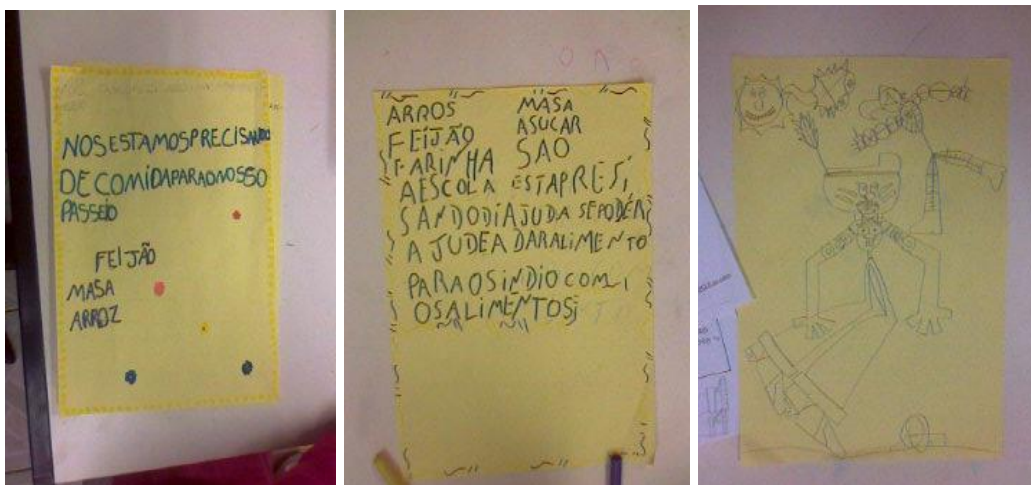 NOSESTAMOSPRECISANDO
DECOMIDAPARAONOSSO
PASSEIO
FEIJÃO
MASA
ARROZ
ARROS
FEIJÃO
FARINHA
MASA
ASUCAR
SAO
AESCOLA ESTAPRESI
SANDODIAJUDA SEPODER
AJUDEA DARALIMENTO
PARAOSINDIOCOMI
OSALIMENTOS